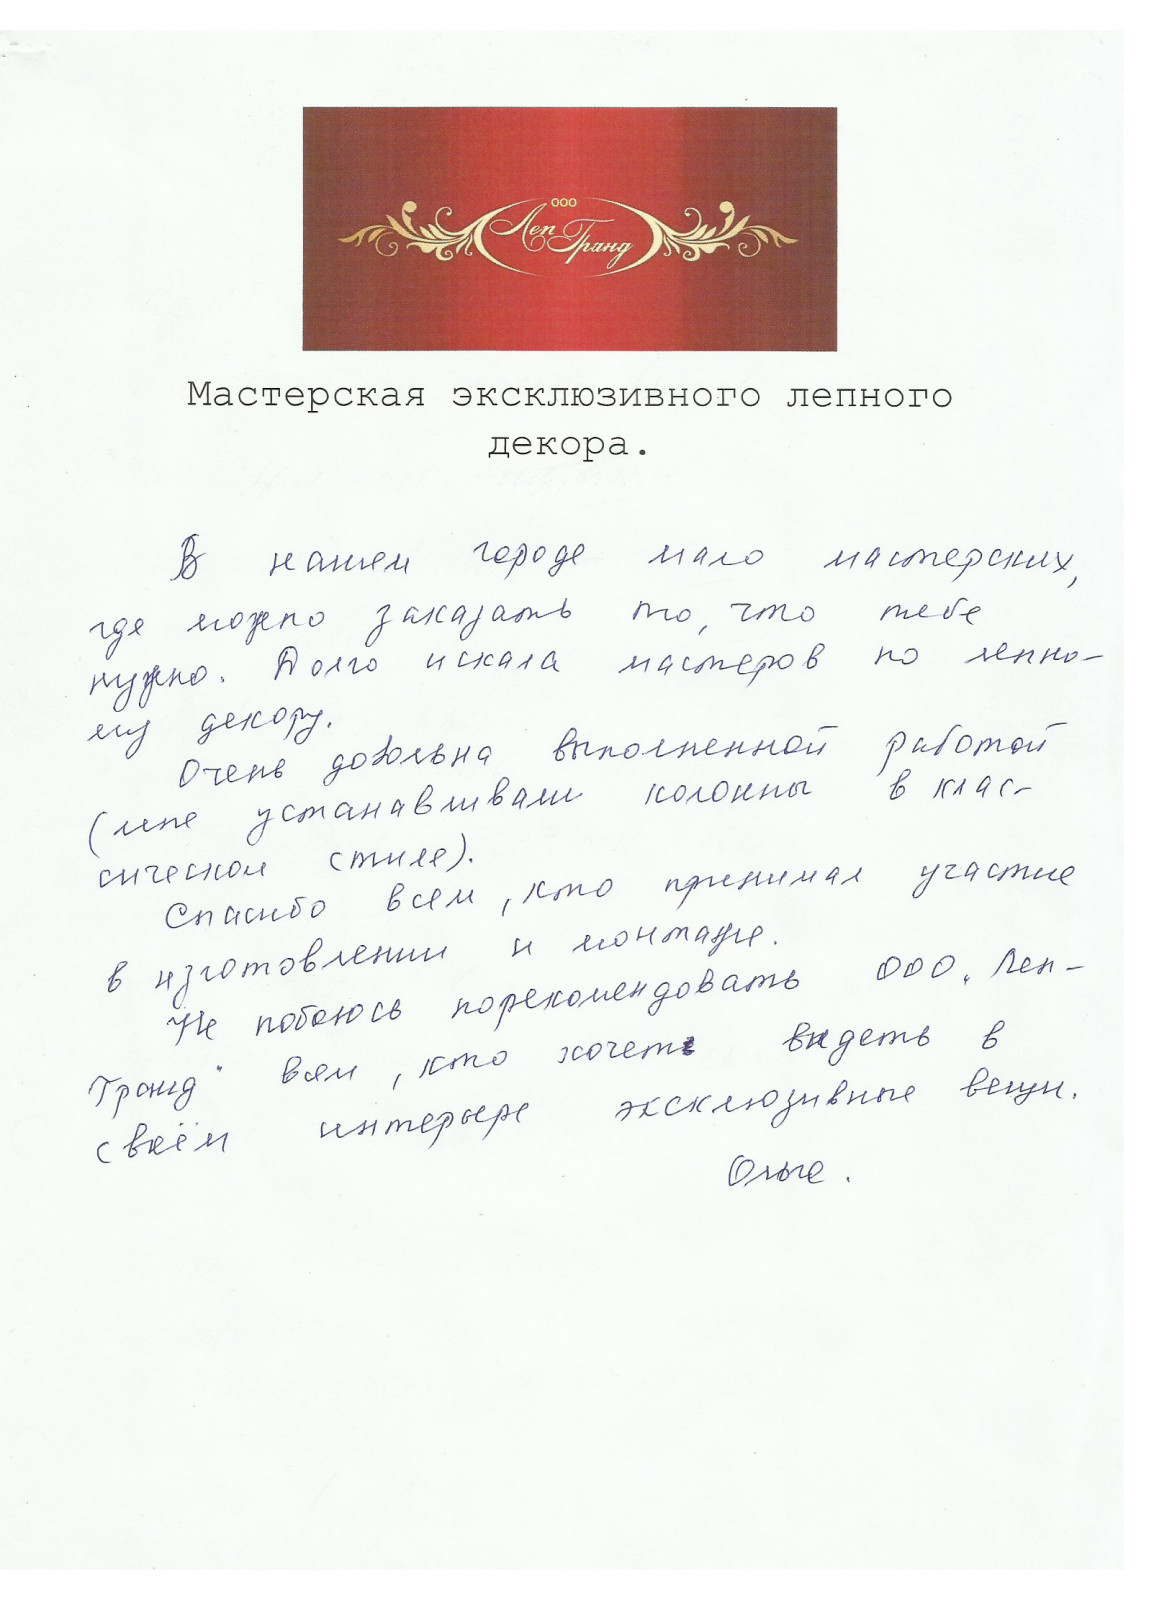 ООО
Леп Гранд
Мастерская эксклюзивного лепного
декора.
В нашем городе мало мастерских,
где можно заказать то, что тебе
нужно. Долго искала мастеров по лепно-
му декору.
Очень довольна выполненной работой
(мне устанавливали колонны в клас-
сическом стиле).
Спасибо всем, кто принимал участие
в изготовлении и монтаже.
Не побоюсь порекомендовать ООО „Леп-
Гранд“ всем, кто хочет видеть в
своём интерьере эксклюзивные вещи.
Ольга.